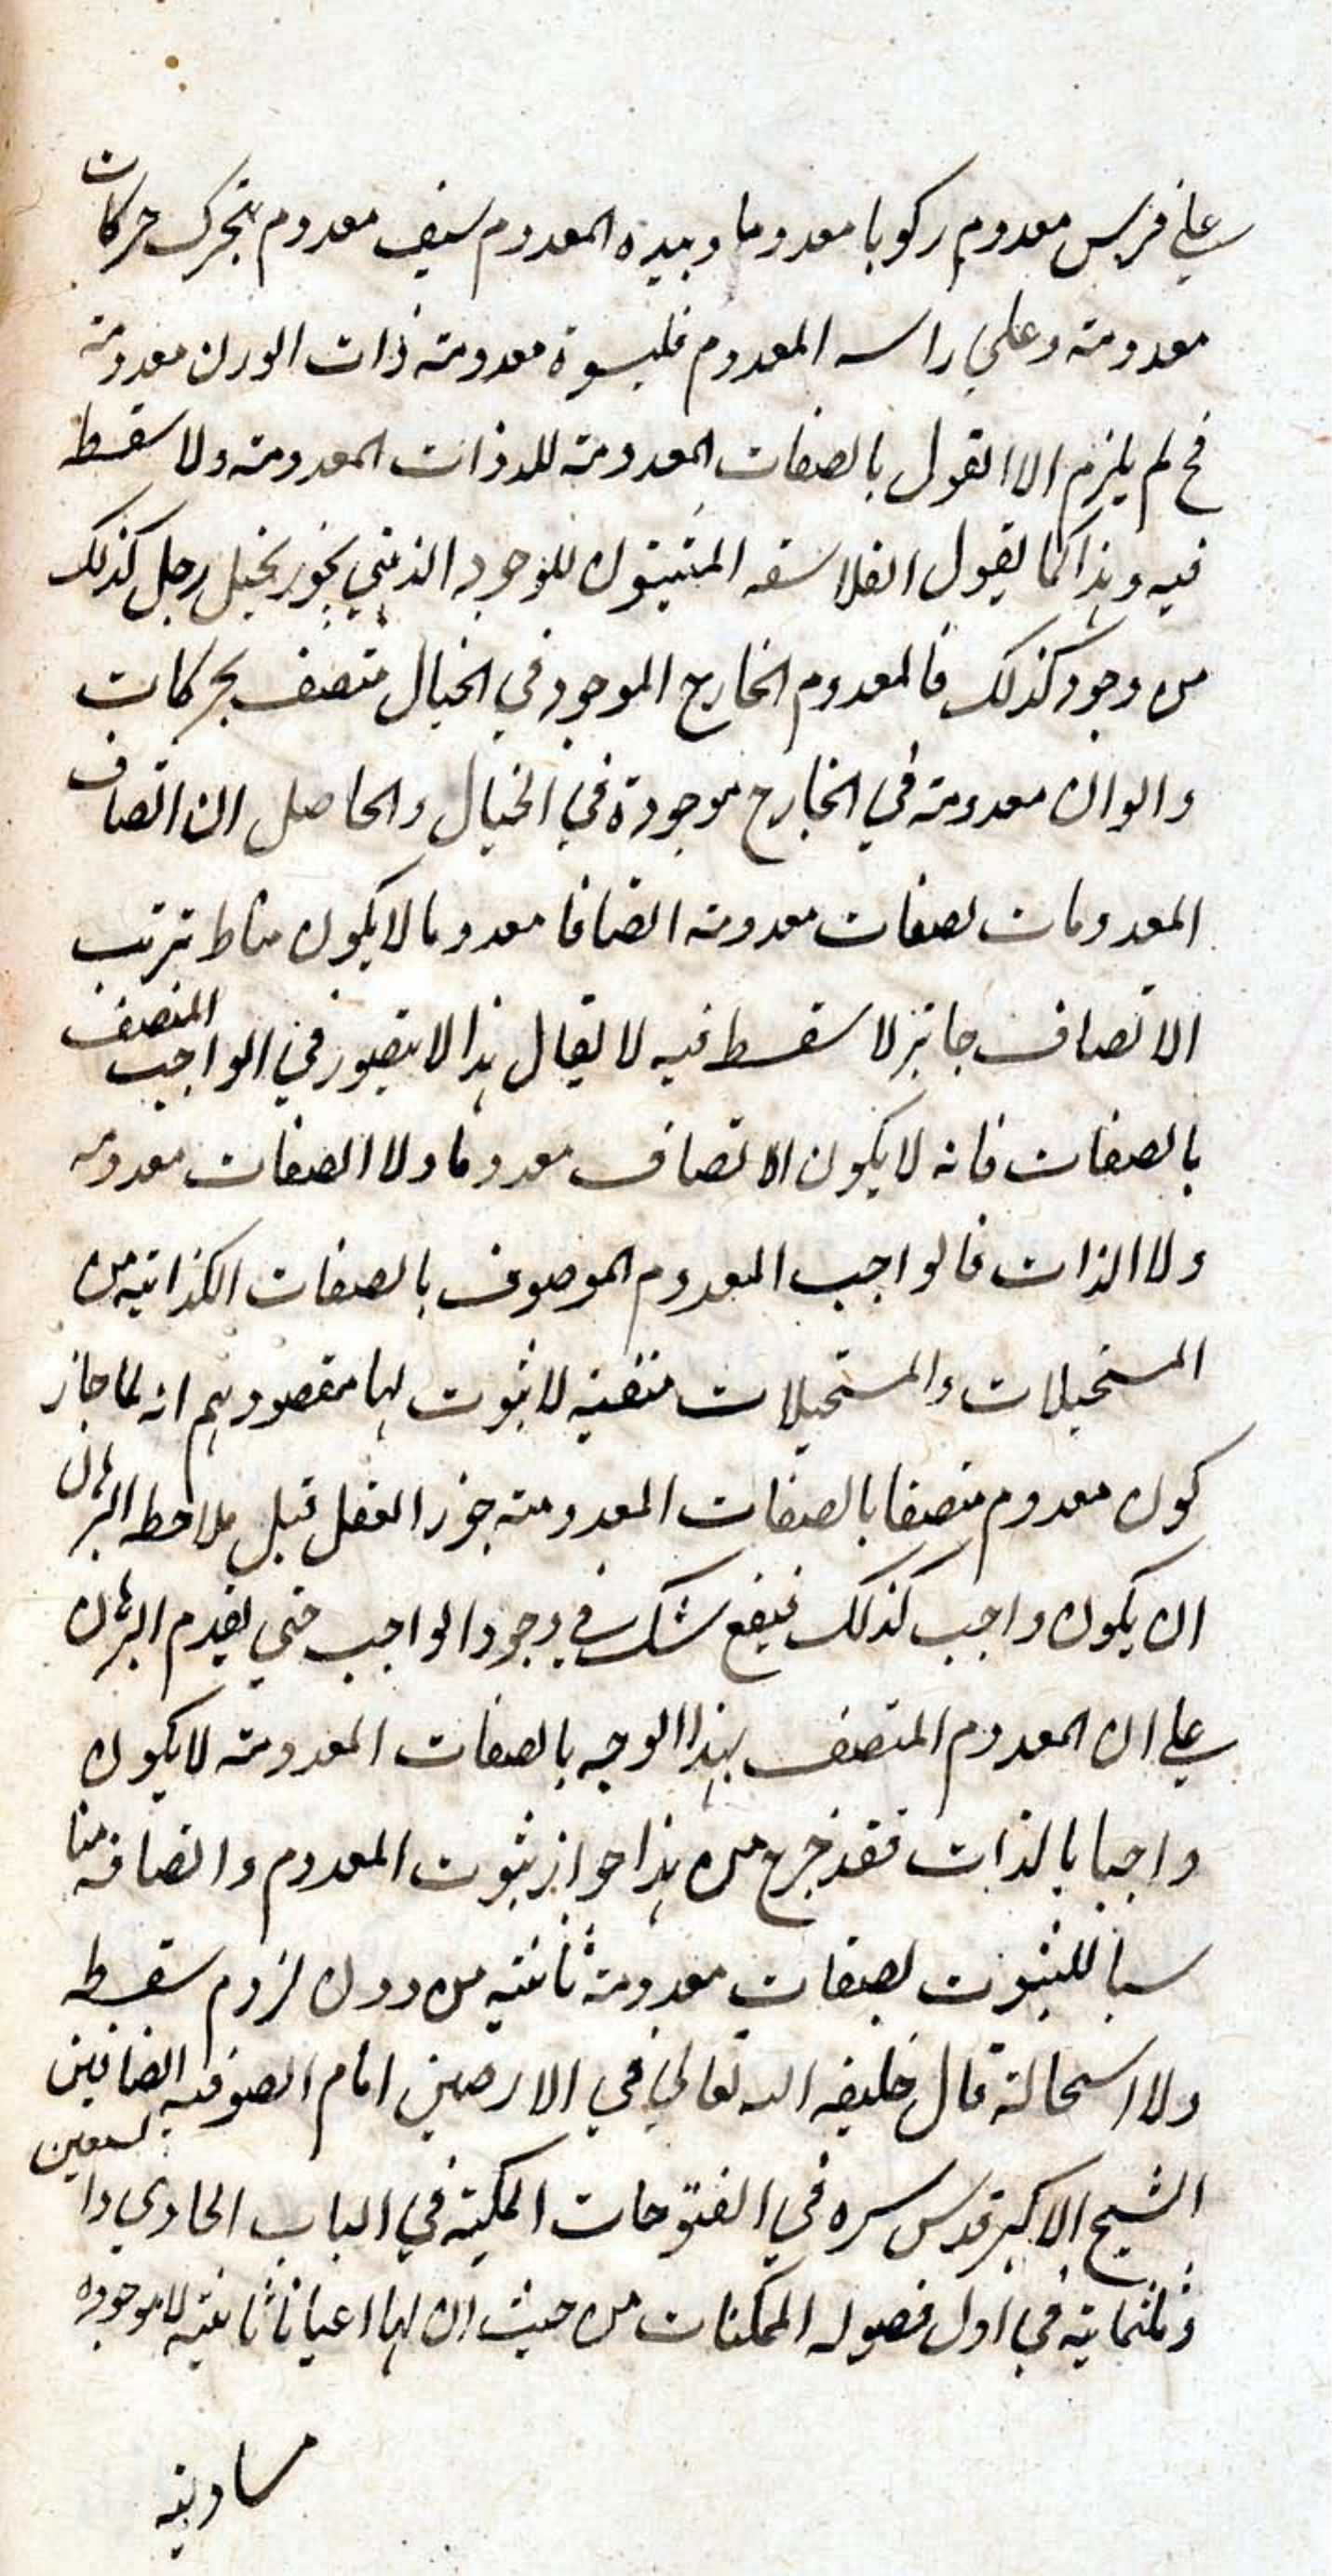 علي فرس معدوم ركوبا معدوما وبيده المعدوم سيف معدوم يتحرك حركات
معدومة وعلي راسه المعدوم قلنسوة معدومة ذات الوان معدومة
فح لم يلزم الا القول بالصفات المعدومة للذوات المعدومة ولا سقسطه
فيه وهذا كما يقول الفلاسفه المثبتون للوجود الذهني يجوز تخيل رجل كذلك
من وجود كذلك فالمعدوم الخارج الموجود في الخيال متصف بحركات
والوان معدومة في الخارج موجودة في الخيال والحاصل ان اتصاف
المعدومات بصفات معدومه اتصافا معدوما لا يكون مناط ترتب
الاتصاف جائز لا سقسطه فيه لا يقال هذا لا يتصور في الواجب المتصف
بالصفات فانه لا يكون الاتصاف معدوما ولا الصفات معدومه
ولا الذات فالواجب المعدوم الموصوف بالصفات الكذائية من
المستحيلات والمستحيلات منفية لا ثبوت لها مقصودهم انه لما جاز
كون معدوم متصفا بالصفات المعدومة جوز العقل قبل ملاحظه البرهان
ان يكون واجب كذلك فيقع شك في وجود الواجب حتي يقدم البرهان
علي ان المعدوم المتصف بهذا الوجه بالصفات المعدومة لا يكون
واجبا بالذات فقد خرج من هذا جواز ثبوت المعدوم واتصافه منا
سبا للثبوت بصفات معدومة ثابتة من دون لزوم سقسطه
ولا استحالة قال خليفه الله تعالي في الارضين امام الصوفيه الصافين
الشيخ الاكبر قدس سره في الفتوحات المكية في الباب الحادي والسبعين
وثلثماية في اول فصوله الممكنات من حيث ان لها اعيانا ثابتة لا موجوده
مساوية